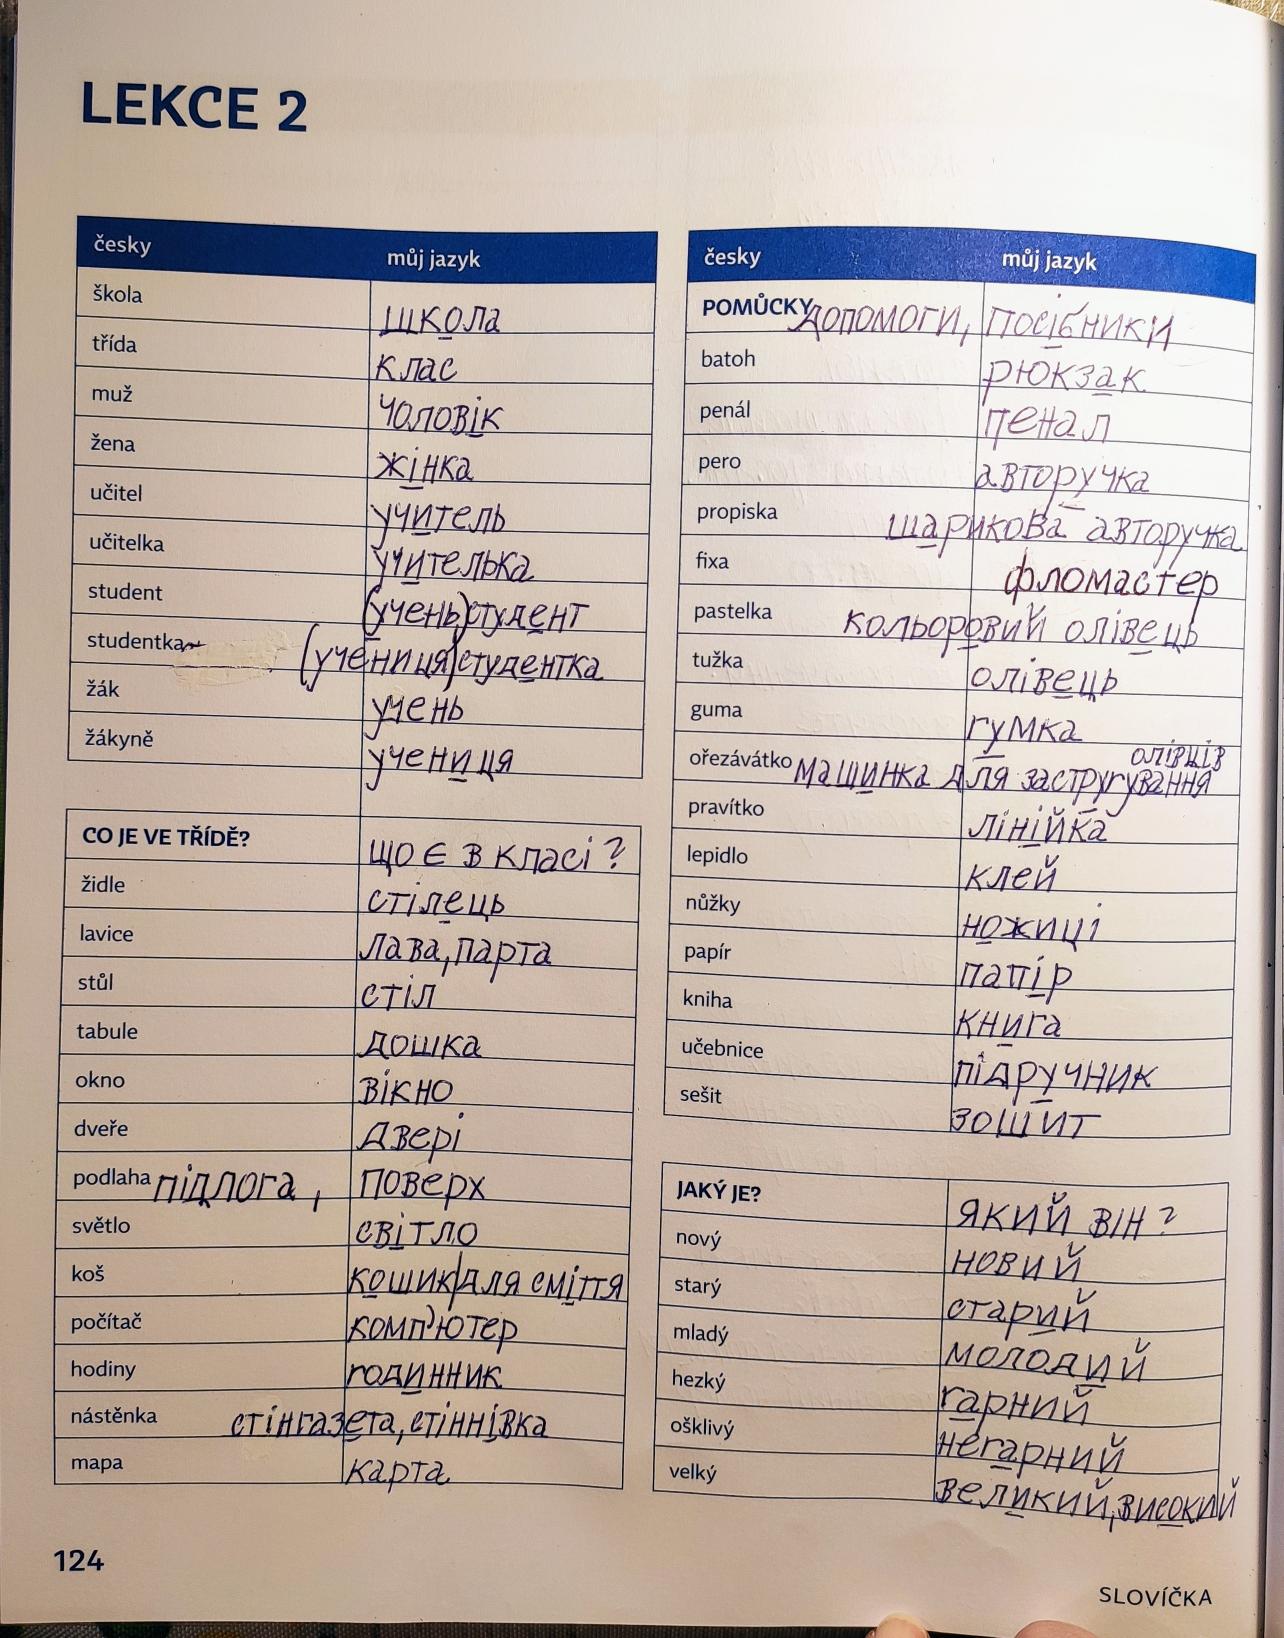 LEKCE 2
česky můj jazyk
škola школа
třída клас
muž чоловік
žena жінка
učitel учитель
učitelka учителька
student (учень)студент
studentka (учениця)студентка
žák учень
žákyně учениця
CO JE VE TŘÍDĚ? що є в класі?
židle стілець
lavice лава, парта
stůl стіл
tabule дошка
okno вікно
dveře двері
podlaha підлога, поверх
světlo світло
koš кошик для сміття
počítač комп'ютер
hodiny годинник
nástěnka стінгазета, стіннівка
mapa карта
česky můj jazyk
POMŮCKY допомоги, посібники
batoh рюкзак
penál пенал
pero авторучка
propiska шарикова авторучка
fixa фломастер
pastelka кольоровий олівець
tužka олівець
guma гумка
олівців
ořezávátko машинка для застругування
pravítko лінійка
lepidlo клей
nůžky ножиці
papír папір
kniha книга
učebnice підручник
sešit зошит
JAKÝ JE? який він?
nový новий
starý старий
mladý молодий
hezký гарний
ošklivý негарний
velký великий, високий
124
SLOVÍČKA